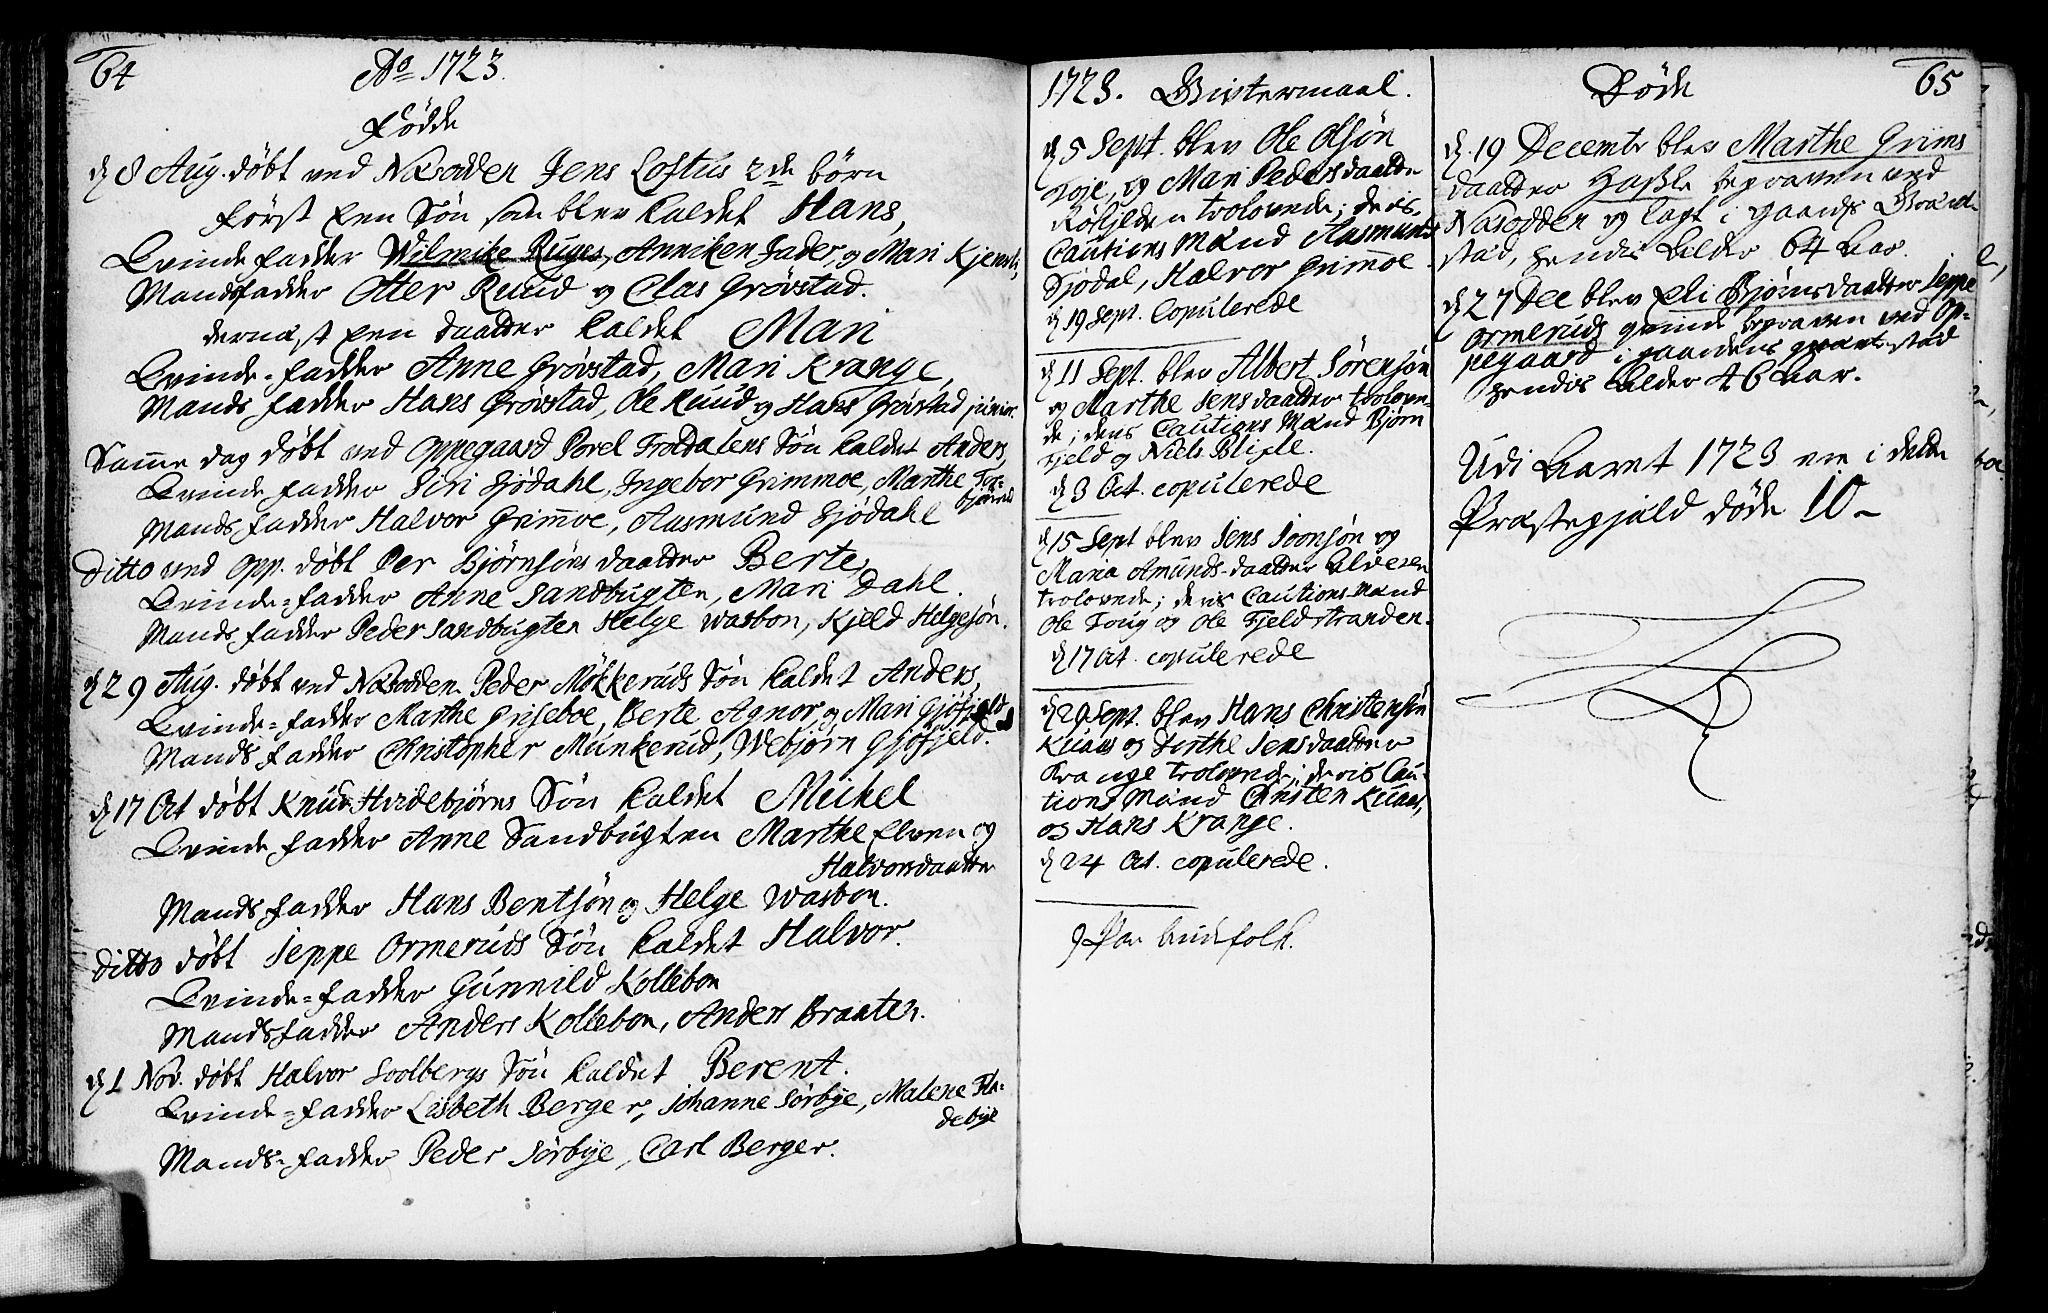 64
Ao 1723.
Födde
d 8 Aug. döbt ved Næsodden Jens Loftus 2de börn
Först Een Sön som blev kaldet Hans,
Qvinde Fadder Wilmike Ruges, Anniken Fader, og Mari
Mandsfadder Otter Ruud og Clas Grövstad.
dernæst Een daatter kaldet Mari
Qvinde-fadder Anne Grövstad, Mari Krange,
Mands fadder Hans Grövstad, Ole Ruud og Hans Grövstad junior.
Samme dag döbt ved Oppegaard Povel Troldalens Sön kaldet Anders,
Qvinde fadder Siri Sjödahl, Ingebor Grimmoe, Marthe Tor-
björnrud
Mands fadder Halvor Grimoe, Aasmund Sjödahl
Ditto ved Opp. döbt Per Björnsöns daatter Berte,
Qvinde-fadder Anne Sandbugten, Mari Dahl.
Mands fadder Peder Sandbugten Helge Wasbon, Kjeld Helgesön.
d 29 Aug. döbt ved Næsodden Peder Mökkeruds Sön kaldet Anders,
Qvinde-fadder Marthe Griseboe, Berte Agnor, og Mari Gjöfjeld
Mands fadder Christopher Munkerud, Webjörn Gjöfjeld.
d 17 Oct döbt Knud Hvidebjörns Sön kaldet Michel
Qvinde fadder Anne Sandbugten Marthe Elven og
Halvorsdaatter
Mands fadder Hans Bentsön og Helge Wasbon.
Ditto döbt Jeppe Ormeruds Sön kaldet Halvor.
Qvinde-fadder Gunnild Kollebon
Mandsfadder Anders Kollebon, Anders Braaten.
d 1 Nov. döbt Halvor Soolbergs Sön kaldet Berent.
Qvinde-fadder Lisbeth Berger, Johanne Sörbye, Malene Fla-
debye
Mands-fadder Peder Sörbye, Carl Berger.
1723. Givtermaal.
d 5 Sept. blev Ole Olsön
og Mari Pedersdaatter
trolovede; deris
Cautions Mænd Aasmund
Sjödal, Halvor Grimoe.
d 19 Sept. Copulerede
d 11 Sept. blev Albert Sörensön
og Marthe Jensdaatter trolove-
de; deris Cautions Mænd Björn
Fjeld og Niels Blixle.
d 3 Oct. copulerede
d 15 Sept blev Jens Joensön og
Maria Amunds-daatter
trolovede; deris Cautions Mænd
Ole Toug og Ole Fjeldstranden.
d 17 Oct. copulerede
d 29 Sept. blev Hans Christensön
Kuaas og Dorthe Jensdaatter
Krange trolovede; deris Cau-
tions Mænd Christen Kuaas,
og Hans Krange.
d 24 Oct. copulerede.
9 Par brudfolk.
Döde
65
d. 19 Decembr blev Marthe Grims
daatter Haslle begraven ved
Næsodden og lagt i gaards Grav-
stæd, hendis Alder 64 Aar.
d 27 Dec blev Eli Björnsdaatter Jeppe
Ormeruds qvinde begraven ved Op-
pegaard i gaardens gravestæd
hendis Alder 46 Aar.
Udi Aaret 1723 ere i dette
Præstegjæld döde 10